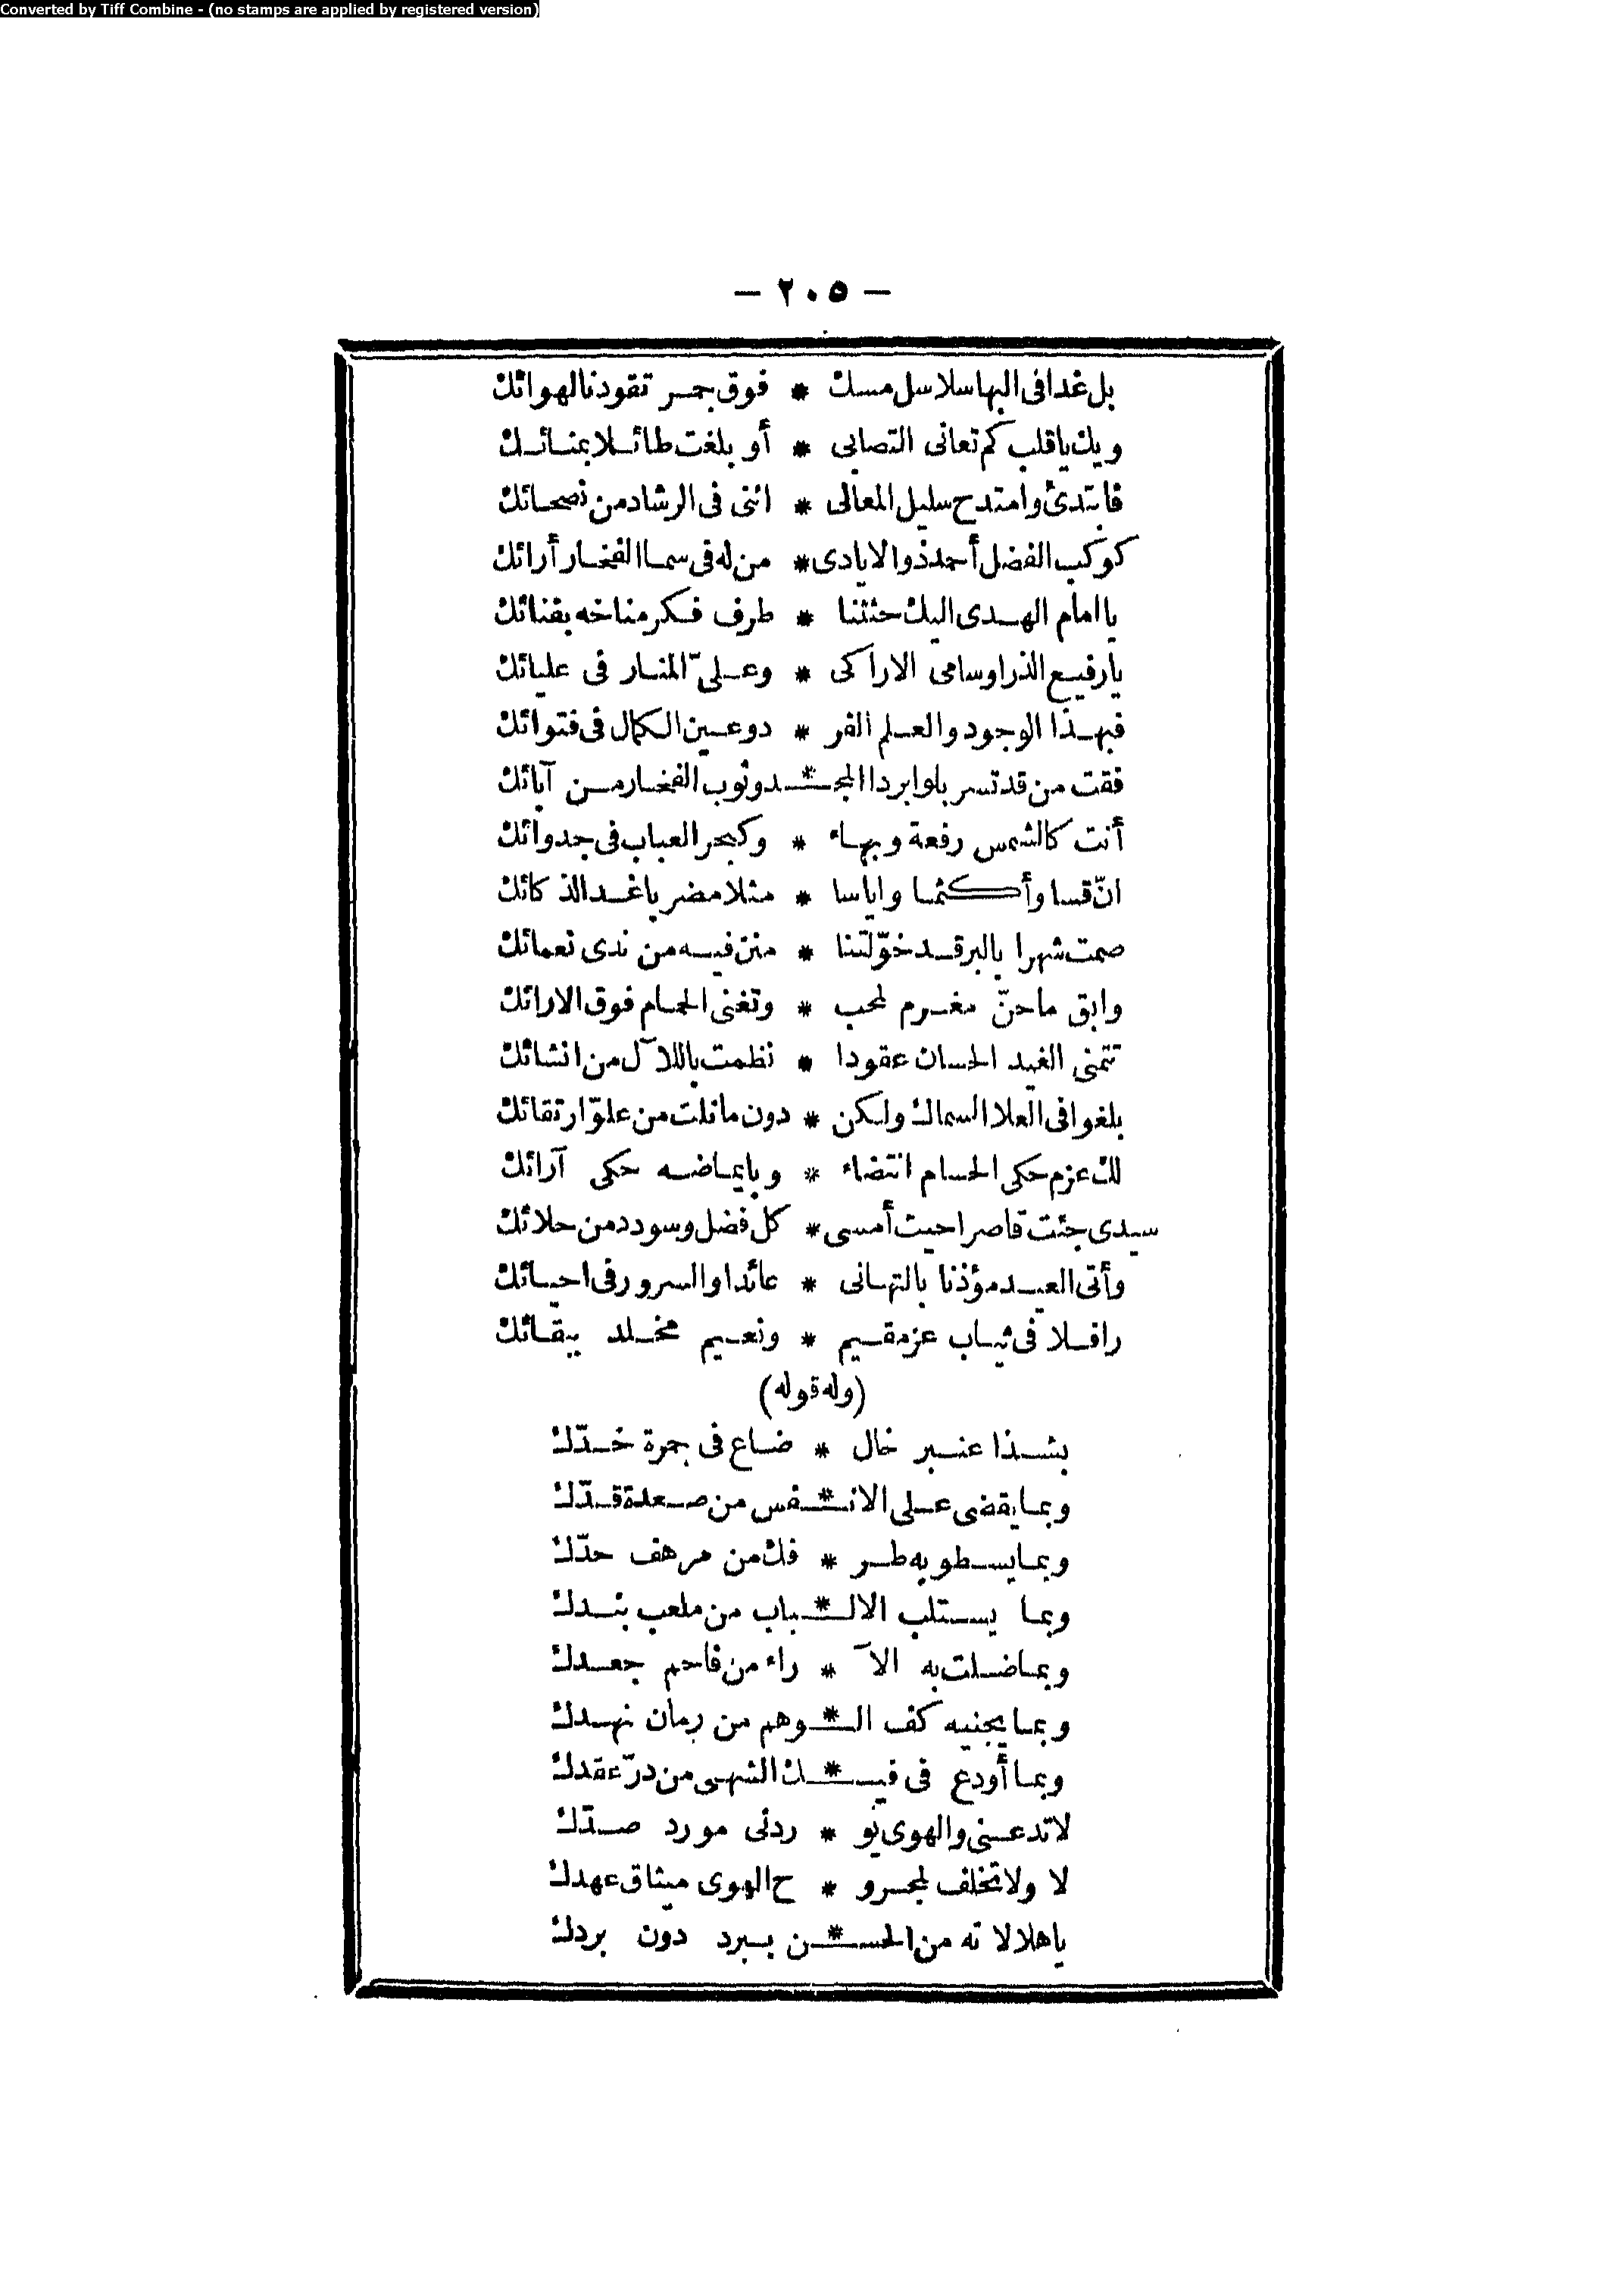 Converted by Tiff Combine - (no stamps are applied by registered version)
— ٢٠٥ —
بل غدا فى البها سلاسل مسك * فوق جمر تقودنا لهوائك
ويك ياقلب كم تعانى التصابى * أو بلغت طائلا بمنائك
فابتدئ وامتدح سليل المعالى * اننى فى الرشاد من نصحائك
كوكب الفضل أحمد ذو الايادى * من له فى سما الفخار أرائك
يا امام الهدى اليك حثثنا * طرف فكر مناخه بفنائك
يارفيع الذرا وسامى الاراكى * وعلىّ المنار فى عليائك
فبهذا الوجود والعلم الفر * دو عين الكمال فى فتوائك
فقت من قد تسر بلوا بردا المجـ * ـد وثوب الفخار من آبائك
أنت كالشمس رفعة وبهاء * وكبحر العباب فى جدوائك
انّ قسا وأكثما واياسا * مثلا مضر باغد الذكائك
صمت شهرا بالبر قد خوّلتنا * منن فيه من ندى نعمائك
وابق ما حنّ مغرم لمحب * وتغنى الحمام فوق الارائك
تتمنى الغيد الحسان عقودا * نظمت باللآل من انشائك
بلغوا فى العلا السماك ولكن * دون مانلت من علوّ ارتقائك
لك عزم حكى الحسام انتضاء * وبايماضه حكى آرائك
سيدى جئت قاصرا حيث أمسى * كل فضل وسودد من حلائك
وأتى العيد مؤذنا بالتهانى * عائدا والسرور فى احيائك
رافلا فى ثياب عز مقيم * ونعيم مخلد ببقائك
(وله قوله)
بشذا عنبر خال * ضاع فى جمرة خدّك
وبما يقضى على الانـ * ـفس من صعدة قدّك
وبما يسطو به طر * فك من مرهف حدّك
وبما يستلب الالـ * ـباب من ملعب بندك
وبما ضلت به الآ * راء من فاحم جعدك
وبما يجنيه كف الـ * ـوهم من رمان نهدك
وبما أودع فى فيـ * ـك الشهى من درّ عقدك
لاتدعنى والهوى يو * ردنى مورد صدّك
لا ولا تخلف لمجرو * ح الهوى ميثاق عهدك
ياهلالا ته من الحسـ * ـن ببرد دون بردك